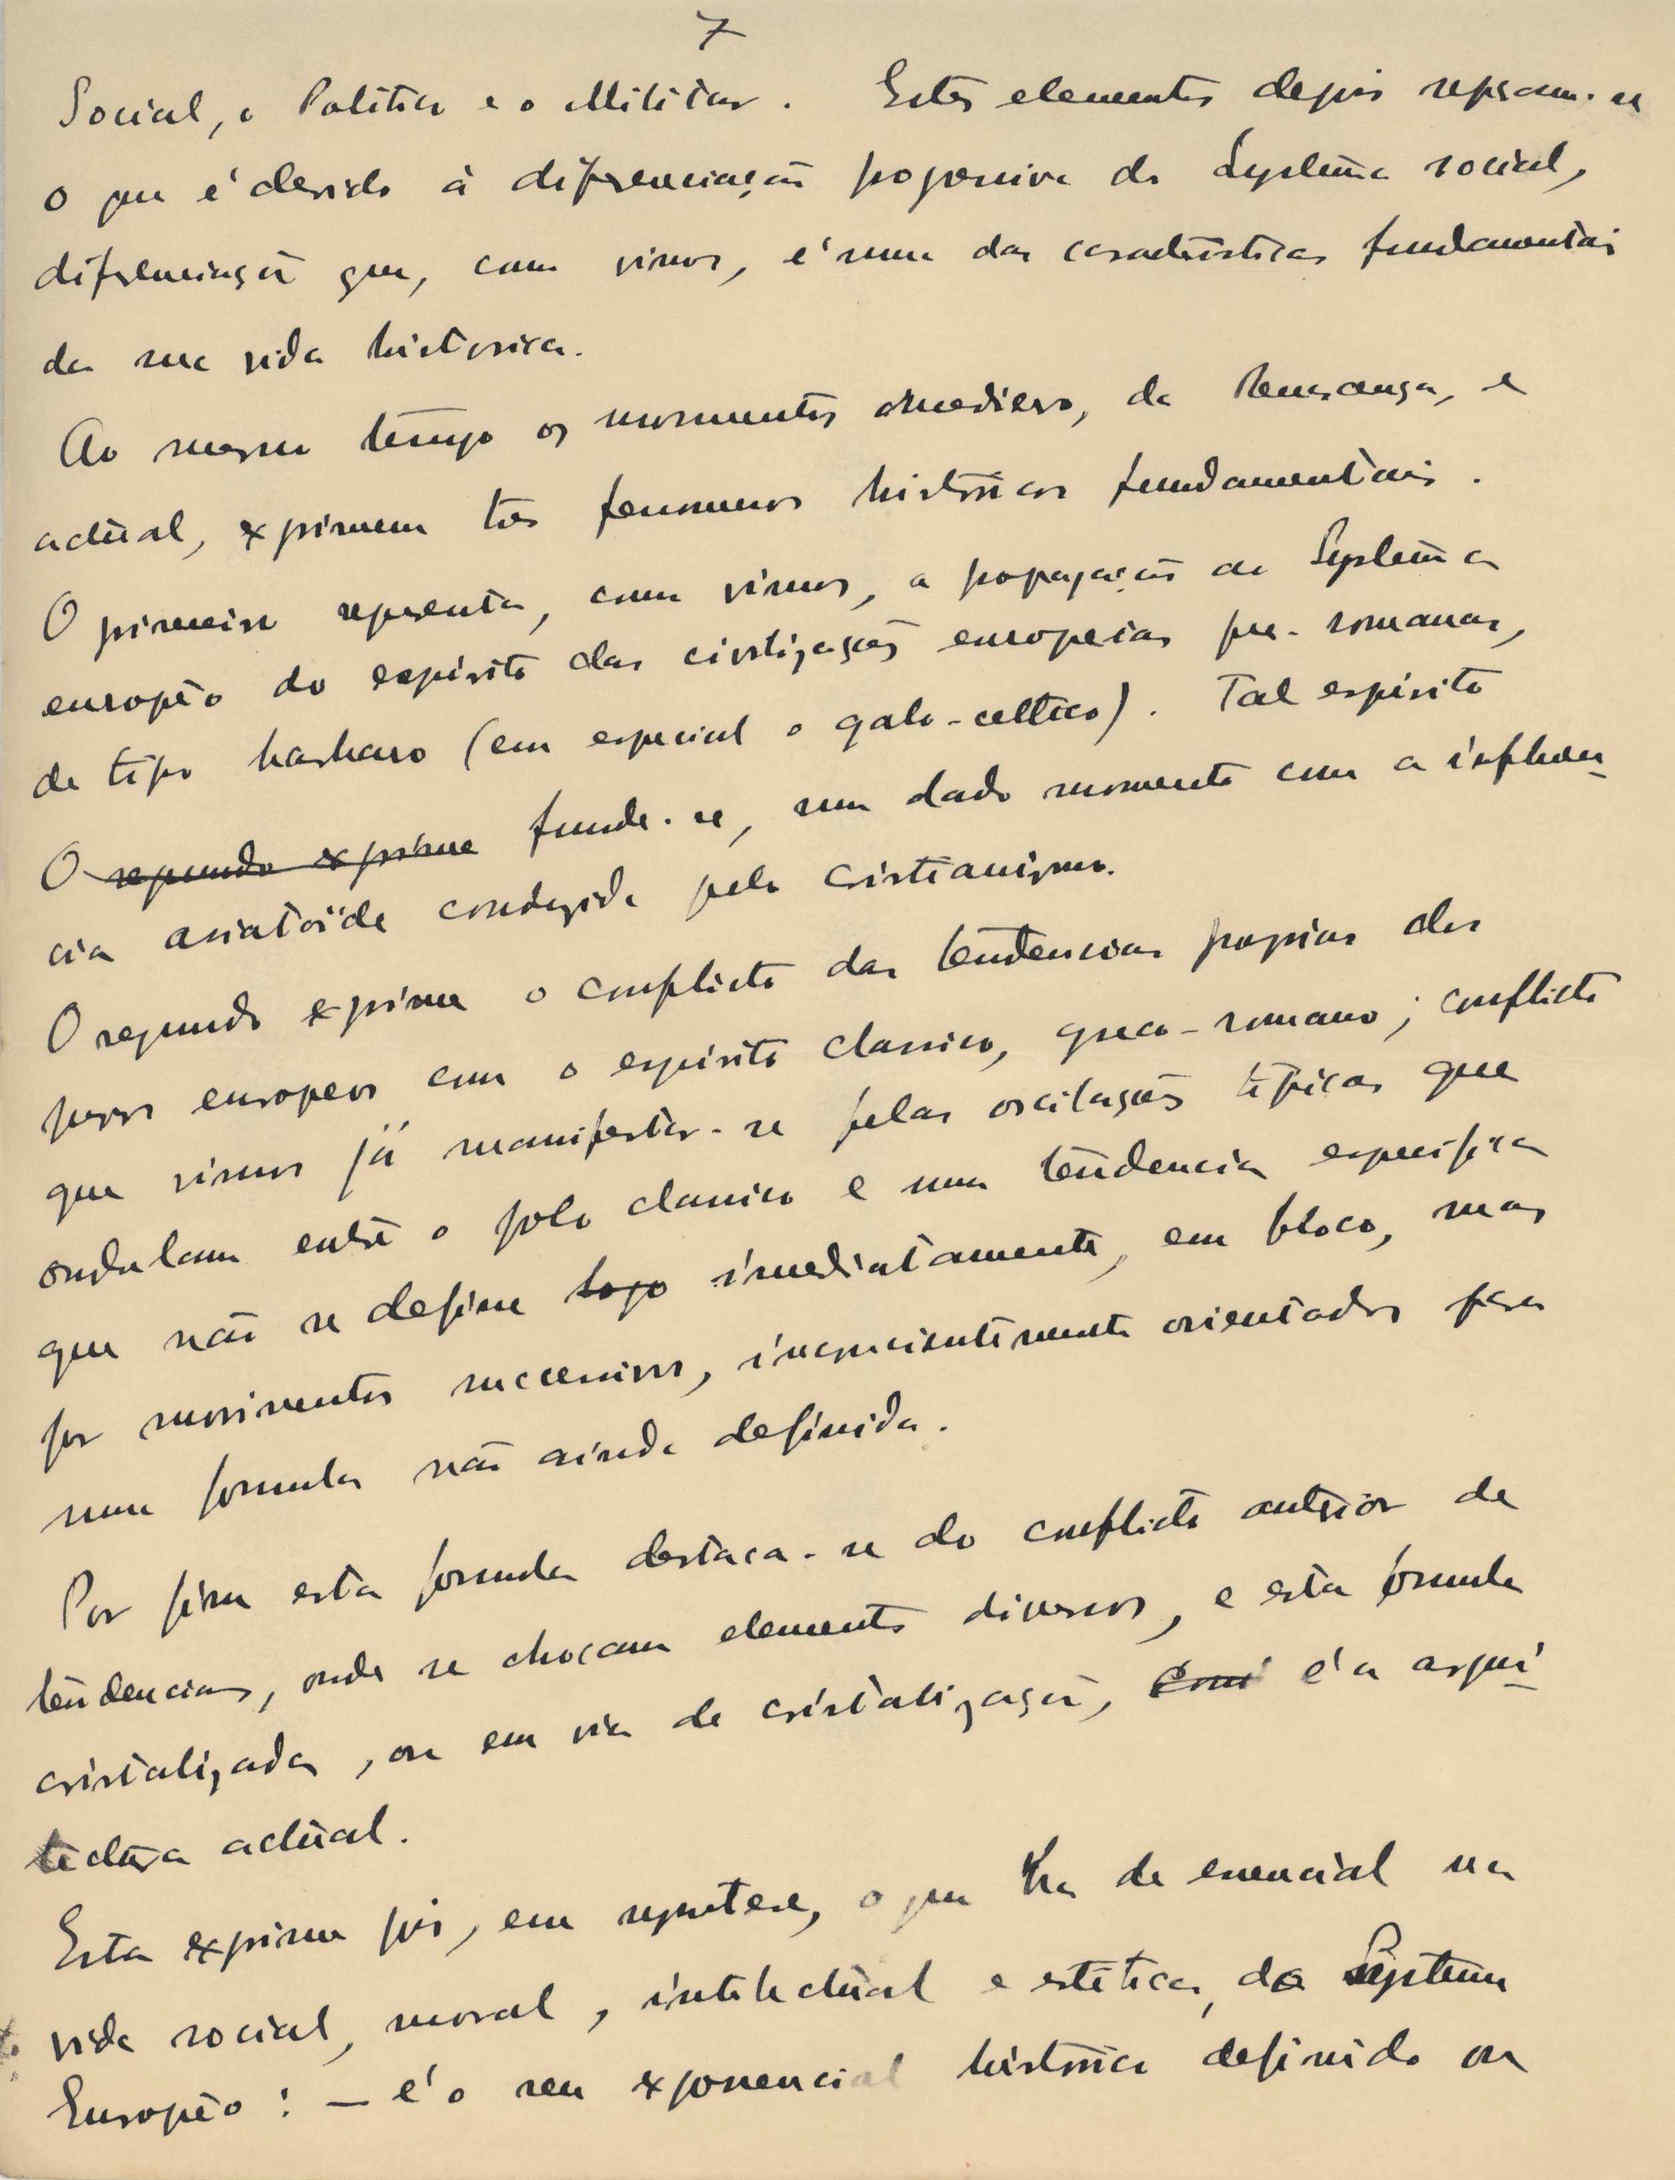 7
Social, o Politico e o Militar. Estes elementos depois separam-se
o que é devido á diferenciação progressiva do Systema social,
diferenciação que, como vimos, é uma das caracteristicas fundamentais
da sua vida historica.
Ao mesmo tempo os momentos medievo, da Renascença, e
actual, exprimem tres fenomenos historicos fundamentais.
O primeiro representa, como vimos, a propagação ao Systema
europêo do espirito das civilizações europeias pre-romanas,
de tipo barbaro (em especial o galo-celtico). Tal espirito
O segundo exprime funde-se, num dado momento com a influen-
cia asiatoïde conduzida pelo cristianismo.
O segundo exprime o conflicto das tendencias proprias dos
povos europeus com o espirito classico, greco-romano; conflicto
que vimos já manifestar-se pelas oscilações tipicas que
ondulam entre o polo classico e uma tendencia especifica
que não se define logo imediatamente, em bloco, mas
por movimentos successivos, inconscientemente orientados para
uma formula não ainda definida.
Por fim esta formula destaca-se do conflicto anterior de
tendencias, onde se chocam elementos diversos, e esta formula
cristalizada, ou em via de cristalização, é a arqui-
tectura actual.
Esta exprime pois, em synthese, o que ha de essencial na
vida social, moral, intelectual e estetica, do Systema
Europêo: — é o seu exponencial historico definido ou